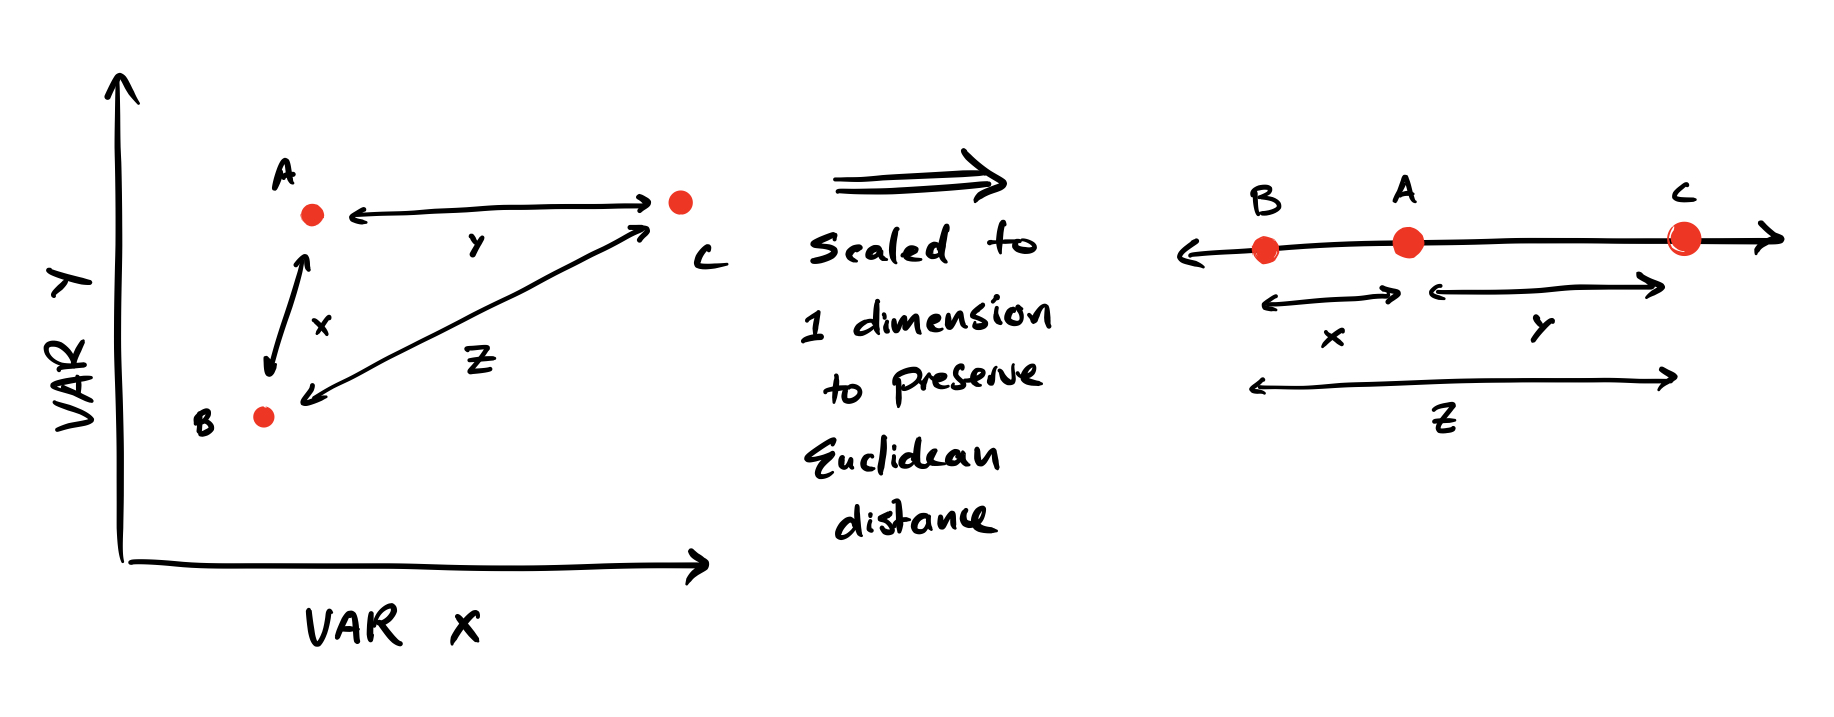 A
y
C
x
Z
B
VAR Y
VAR X
Scaled to
1 dimension
to preserve
Euclidean
distance
B A C
x y
Z